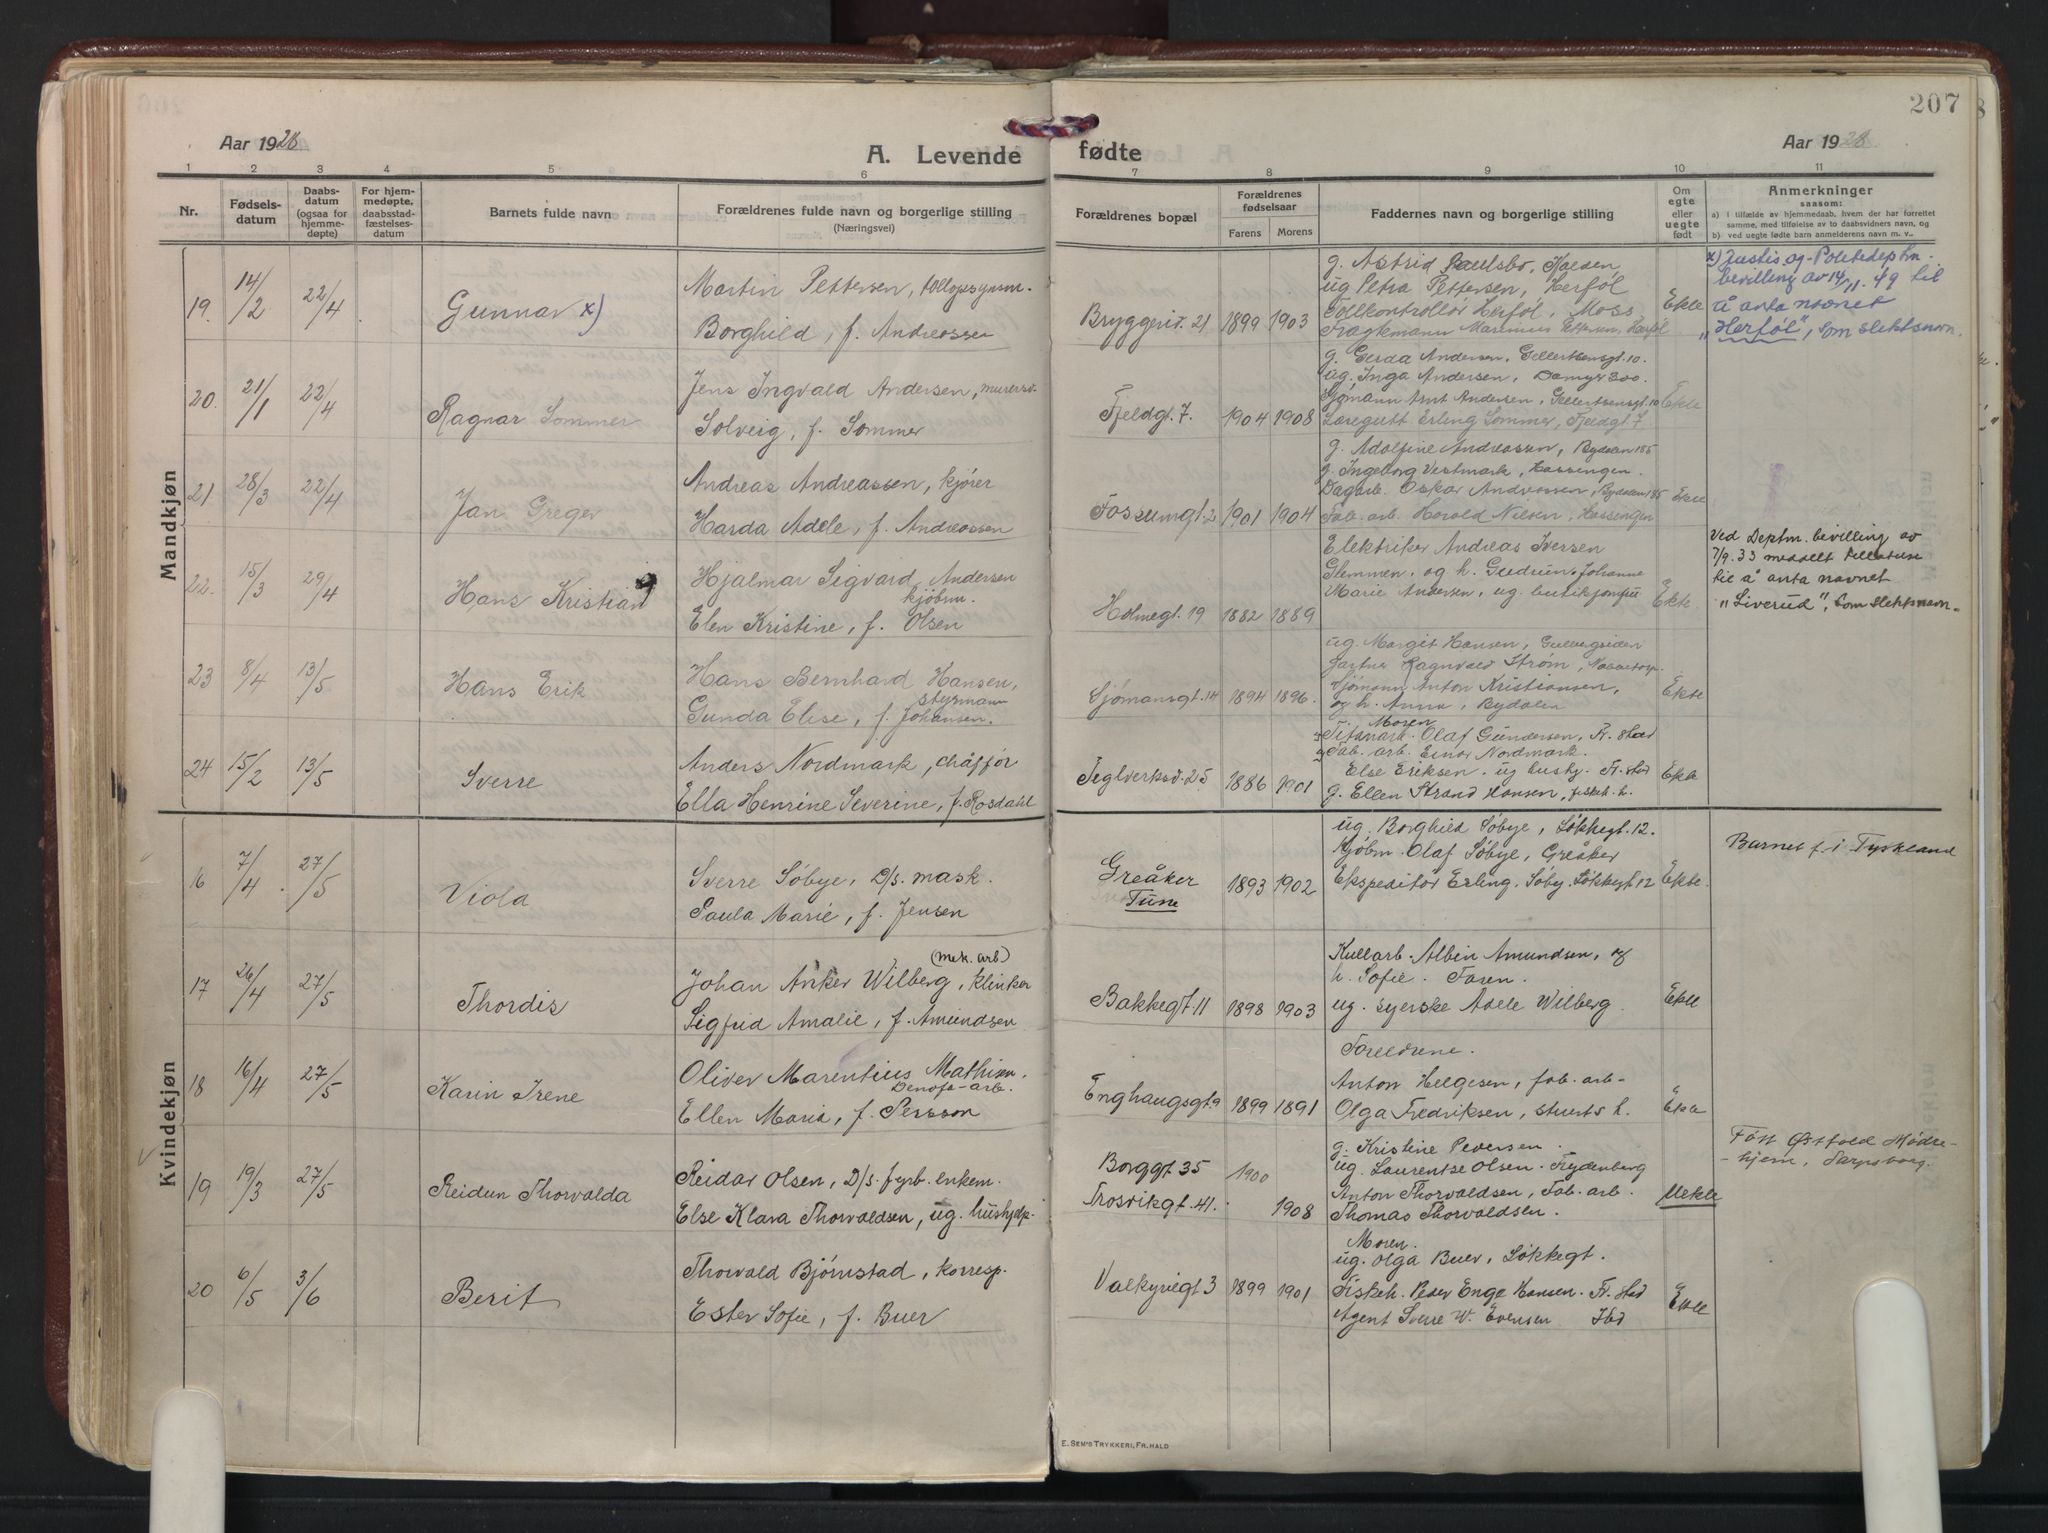 207
Aar 1928
A. Levende fødte
Aar 1928
1 2 3 4 5 6 7 8 9 10 11
Nr.
Fødsels-
datum
Daabs-
datum
(ogsaa for
hjemme-
døpte)
For hjem-
medøpte,
daabsstad-
fæstelses-
datum
Barnets fulde navn
Forældrenes fulde navn og borgerlige stilling
(Næringsvei)
Forældrenes bopæl
Forældrenes
fødselsaar
Farens Morens
Faddernes navn og borgerlige stilling
Om
egte
eller
uegte
født
Anmerkninger
saasom:
a) i tilfælde av hjemmedaab, hvem der har forrettet
samme, med tilføielse av to daabsvidners navn, og
b) ved uegte fødte barn anmelderens navn m. v.,
Mandkjøn
19. 14/2 22/4 Gunnar x)
Martin Pettersen,
Borghild, f. Andreassen
Bryggeriv. 21 1899 1903
g. Astrid Paulsbo, Halden
ug Petra Pettersen, Herføl
Tollkontrollør Herføl, Moss
Fragtmann Marinius Pettersen, Herføl
Ekte
x) Justis og Politideptm.
bevilling av 14/11.49 til
å anta navnet
"Herføl", som slektsnavn.
20. 21/1 22/4 Ragnar Sommer
Jens Ingvald Andersen, murersv.
Solveig, f. Sommer
Fjeldgt. 7. 1904 1908
g. Gerda Andersen, Gellertsensgt. 10.
ug. Inga Andersen, Damyr 300.
Sjømann Arnt Andersen, Gellertsensgt. 10
Læregutt Erling Sommer, Fjeldgt. 7.
Ekte
21. 28/3 22/4 Jan Greger
Andreas Andreassen, kjører
Harda Adele, f. Andreassen
Fossumgt. 2 1901 1904
g. Adolfine Andreassen, Bydalen 185
g. Ingeborg Vestmark, Hassengen.
Dagarb. Oskar Andreassen, Bydalen 185
Fab. arb. Harald Nilsen, Hassengen
Ekte
22. 15/3 29/4 Hans Kristian
Hjalmar Sigvard Andersen
kjøbm.
Elen Kristine, f. Olsen
Holmegt. 19 1882 1889
Elektriker Andreas Iversen
Glemmen, og h. Gudrun Johanne
Marie Andersen, ug. butikjomfru
Ekte
Ved Deptm. bevilling av
7/9.33 meddelt tillatelse
til å anta navnet
"Siverud", som slektsnavn.
23 8/4 13/5 Hans Erik
Hans Bernhard Hansen,
styrmann
Gunda Elise, f. Johansen.
Sjømansgt. 14 1894 1896.
ug. Margit Hansen, Gullbergsiden
Gartner Ragnvald Strøm,
Sjømann Anton Kristiansen,
og h. Anna, Bydalen
Moren
Ekte
24 15/2 13/5 Sverre
Anders Nordmark, chåffør
Ella Henrine Severine, f. Rosdahl
Teglverksv. 25 1886 1901
Titanarb. Olaf Gundersen, Fr. stad
Fab. arb. Einar Nordmark.
Else Eriksen. ug hushj. Fr. stad
g. Ellen Strand Hansen, fiskeh. h.
Ekte
Kvindekjøn
16 7/4. 27/5 Viola
Sverre Søbye, D/s. mask.
Paula Marie, f. Jensen
Greåker
Tune
1893 1902
ug. Borghild Søbye, Løkkegt. 12.
Kjøbm. Olaf Søbye, Greåker
Ekspeditør Erling Søby. Løkkegt 12
Ekte.
Barnet f. i Tyskland
17 26/4 27/5 Thordis
(mek. arb.)
Johan Anker Wilberg, klinker
Sigfrid Amalie, f. Amundsen
Bakkegt. 11 1898 1903
Kullarb. Albin Amundsen, og
h. Sofie. Faren.
ug. syerske Adele Wilberg
Ekte
18 16/4 27/5 Karin Irene
Oliver Marentius Mathisen.
Denofa-arb.
Ellen Maria, f. Persson
Enghaugsgt. 9 1899 1891
Foreldrene.
Anton Helgesen, fab. arb-
Olga Fredriksen, stuerts h.
Ekte
19 19/3 27/5 Reidun Thorvalda
Reidar Olsen, D/s. fyrb. enkem.
Else Klara Thorvaldsen, ug. hushjelp.
Borggt 35 1900
Trosvikgt. 41. 1908
g. Kristine Pedersen.
ug. Laurentse Olsen. Frydenberg
Anton Thorvaldsen, Fab. arb.
Thomas Thorvaldsen.
Moren.
Uekte
Født Østfold Mødre-
-hjem, Sarpsborg.
20 6/5 3/6 Berit
Thorvald Bjørnstad, korresp.
Ester Sofie, f. Buer
Valkyriegt 3 1899 1901
ug. Olga Buer, Løkkegt.
Fiskeh. Peder Enge Hansen. Fr. stad
Agent Sverre W. Evensen Ibid
Ekte
E. SEM'S TRYKKERI, FR. HALD